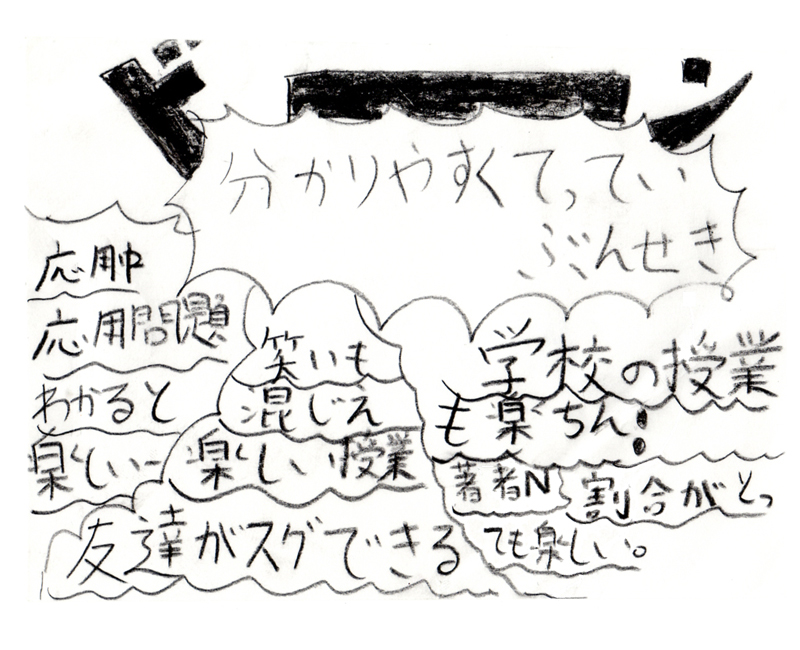 分かりやすくてってい
ぶんせき
応用
応用問題
わかると
楽しいー
笑いも
混じえ
楽しい授業
友達がスグできる
学校の授業
も楽ちん!
著者N
割合がとっ
ても楽しい。